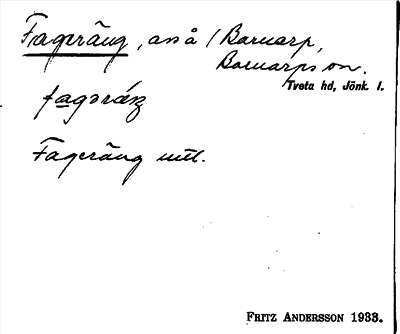 Fageräng, ans å / Barnarp,
Barnarps sn.
Tveta hd, Jönk. l.
Fageräng utt.
FRITZ ANDERSSON 1933.